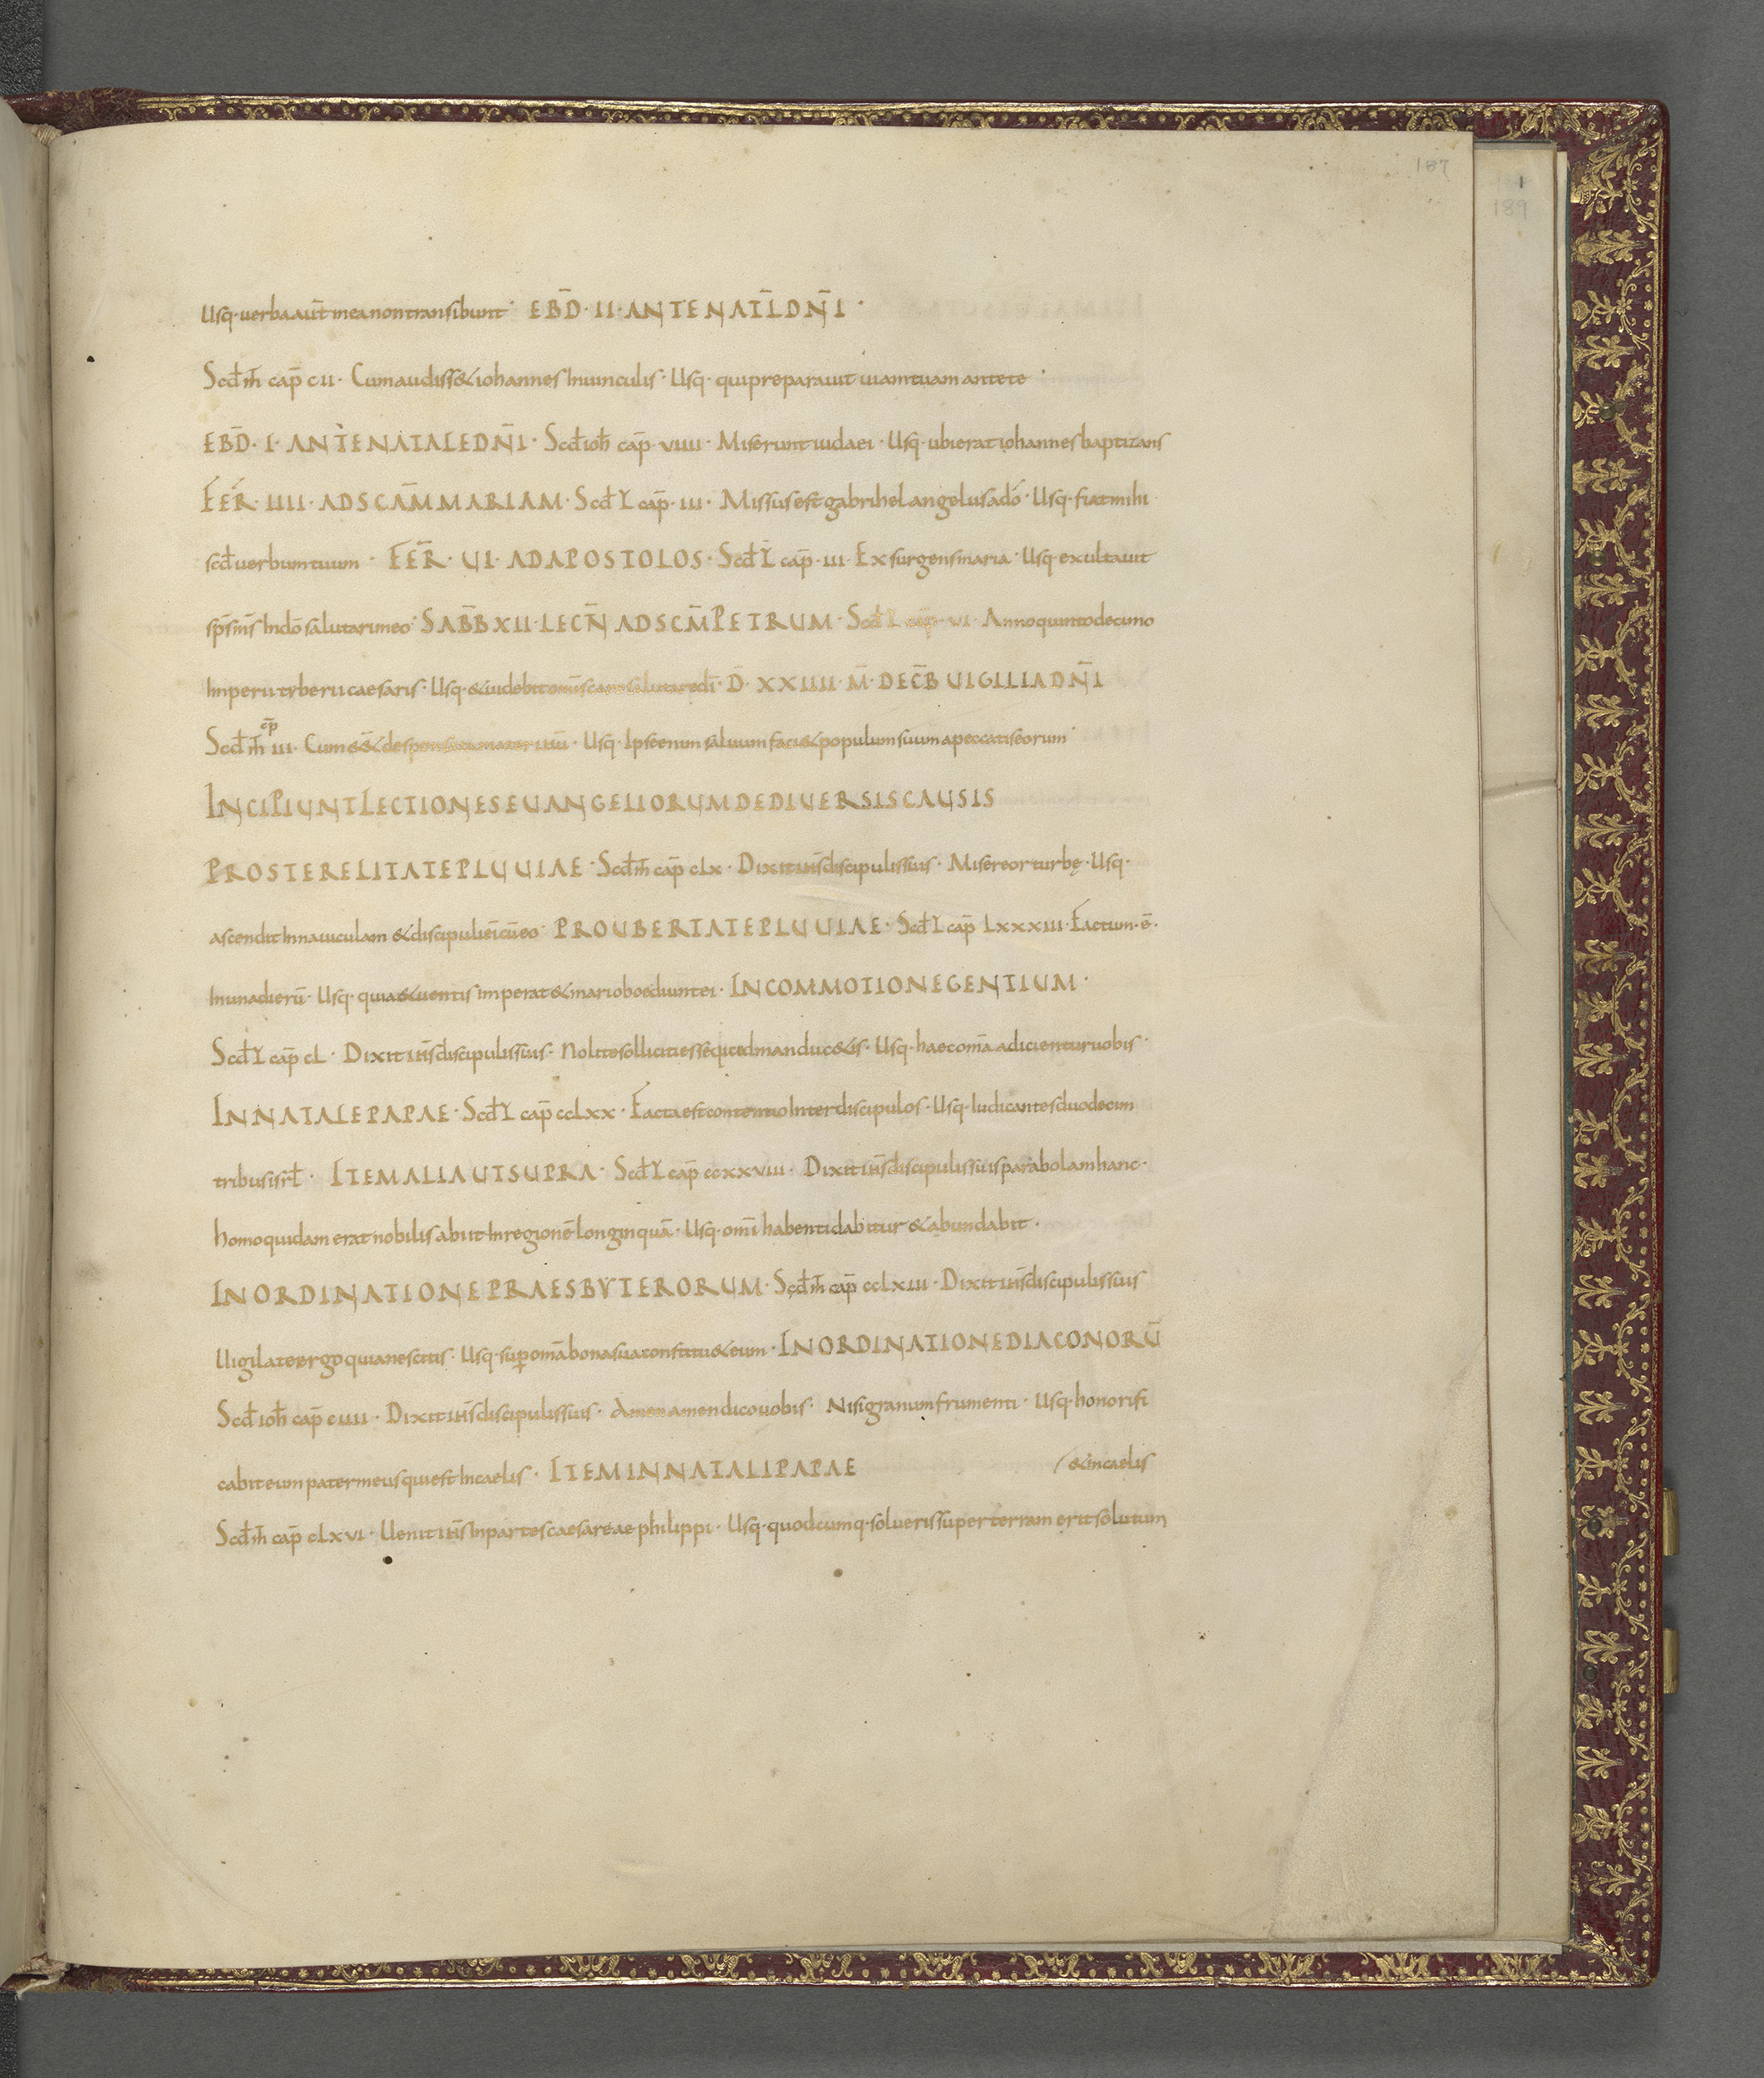 187
1
189
Usq· uerba aut̄ mea non transibunt· EBD̄· II· ANTE NATL̄ DN̄I·
Scd̄ m̄ cap̄ cII· Cum audiss& iohannes In uinculis· Usq· qui preparauit uiam tuam ante te·
EBD̄· I· ANTE NATALE DN̄I· Scd̄ ioh̄ cap̄· VIIII· Miserunt iudaei· Usq· ubi erat iohannes baptizans
FER̄· IIII· AD SCAM̄ MARIAM· Scd̄ L̄ cap̄· III· Missus est gabrihel angelus ad̄o· Usq· fiat mihi
scd̄ uerbum tuum· FER̄· UI· AD APOSTOLOS· Scd̄ L̄ cap̄· III· Exsurgens maria· Usq· exultauit
sp̄s m̄s In dō salutari meo· SABB̄ XII· LECN̄ AD SCM̄ PETRUM· Scd̄ L̄ cap̄· VI· Anno quinto decimo
Imperii tyberii caesaris· Usq· & uidebit om̄is caro salutare dī· D̄· XXIIII· M̄· DECB̄ UIGILIA DN̄I
Scd̄ m̄ cap̄ III· Cum ēē& desponsata mater ihū· Usq· Ipse enim saluum faci& populum suum a peccatis eorum·
INCIPIUNT LECTIONES EUANGELIORUM DE DIUERSIS CAUSIS
PRO STERELITATE PLUUIAE· Scd̄ m̄ cap̄ cLx· Dixit ih̄s discipulis suis· Misereor turbę· Usq·
ascendit In nauiculam & discipuli ēi cū eo· PRO UBERTATE PLUUIAE· Scd̄ L̄ cap̄ LxxxIII· Factum· ē·
In una dierū· Usq· quia & uentis imperat & mari oboediunt ei· IN COMMOTIONE GENTIUM·
Scd̄ L̄ cap̄ cL· Dixit ih̄s discipulis suis· Nolite solliciti esse quid manduc&is· Usq· haec om̄a adicientur uobis·
IN NATALE PAPAE· Scd̄ L̄ cap̄ ccLxx· Facta est contentio Inter discipulos· Usq· Iudicantes duodecim
tribus isrl̄· ITEM ALIA UT SUPRA· Scd̄ L̄ cap̄ ccxxVIII· Dixit ih̄s discipulis suis parabolam hanc·
homo quidam erat nobilis abiit In regionē longinquā· Usq· omī habenti dabitur & abundabit·
IN ORDINATIONE PRAESBYTERORUM· Scd̄ m̄ cap̄ ccLxIII· Dixit ih̄s discipulis suis
Uigilate ergo quia nescitis· Usq· sup̄ om̄a bona sua constitu& eum· IN ORDINATIONE DIACONORŪ
Scd̄ ioh̄ cap̄ cIIII· Dixit ih̄s discipulis suis· Amen amen dico uobis· Nisi granum frumenti· Usq· honorifi
cabit eum pater meus qui est In caelis· ITEM IN NATALI PAPAE / & in caelis
Scd̄ m̄ cap̄ cLxVI· Uenit ih̄s In partes caesareae philippi· Usq· quodcumq· solueris super terram erit solutum